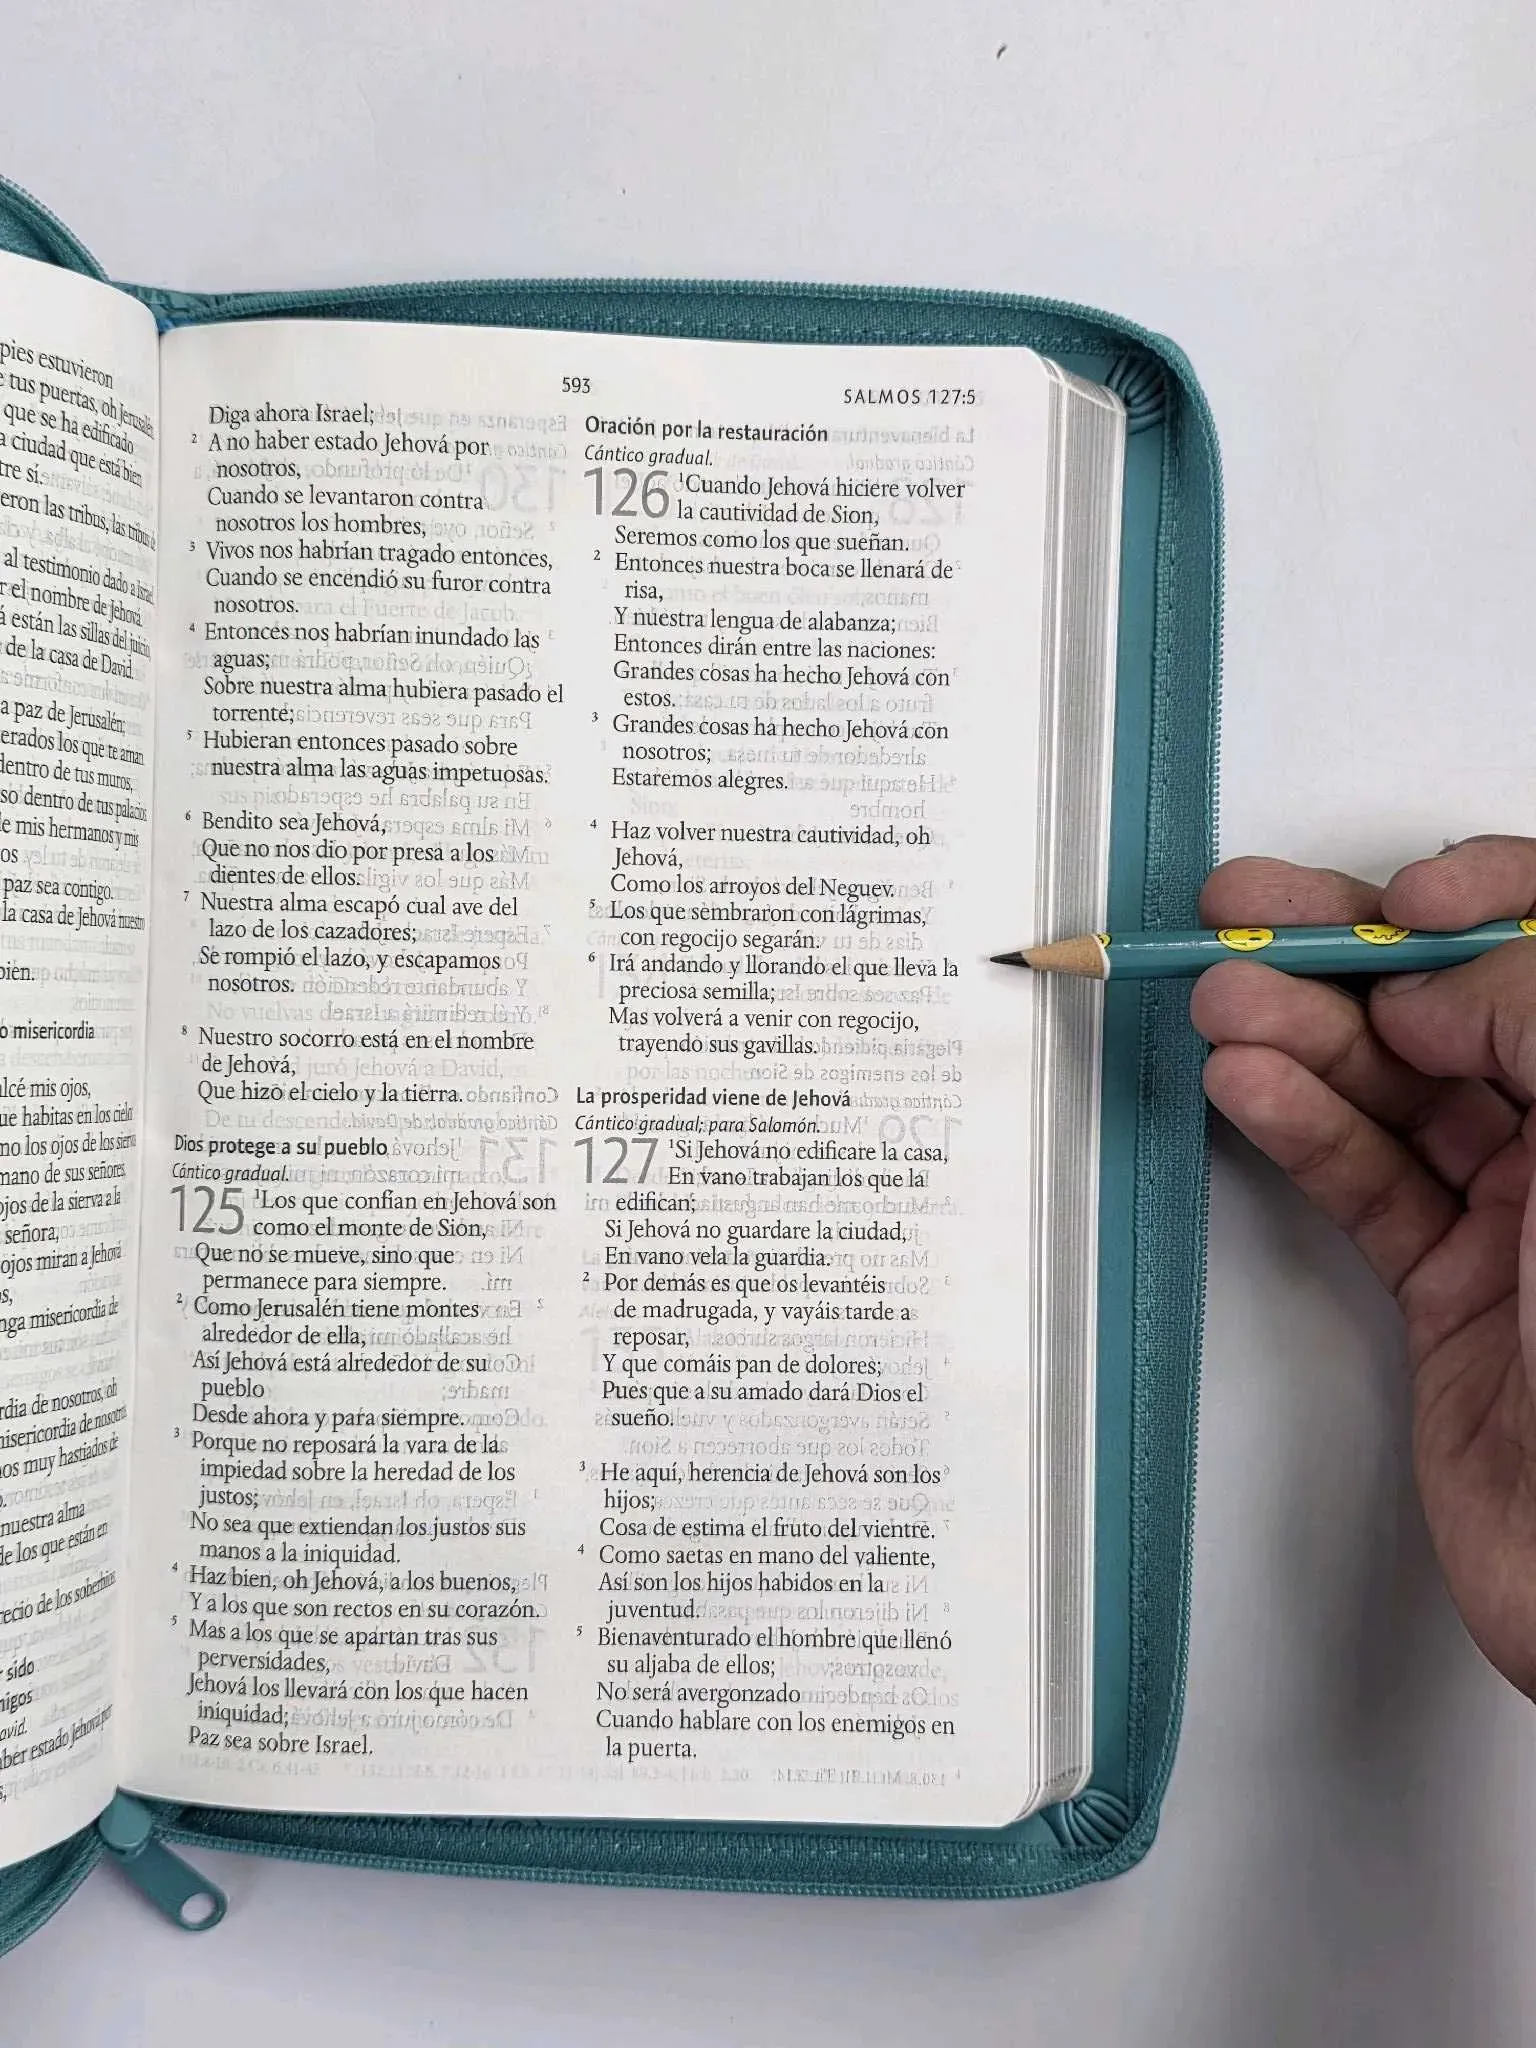 pies estuvieron
tus puertas, oh Jerusalén
que se ha edificado
ciudad que está bien
tre sí.
eron las tribus, las tribus
al testimonio dado a
r el nombre de Jehová
á están las sillas del juicio
de la casa de David.
a paz de Jerusalén;
erados los que te aman
dentro de tus muros,
so dentro de tus palacios
de mis hermanos y mis
os
paz sea contigo.
la casa de Jehová
misericordia
alcé mis ojos,
que habitas en los
mo los ojos de los
mano de sus señores,
ojos de la sierva a la
señora,
ojos miran a Jehová
nga misericordia de
rdia de nosotros, oh
misericordia de nosotros
os muy hastiados de
nuestra alma
de los que están en
593
SALMOS 127:5
Diga ahora Israel;
2 A no haber estado Jehová por
nosotros,
Cuando se levantaron contra
nosotros los hombres,
3 Vivos nos habrían tragado entonces,
Cuando se encendió su furor contra
nosotros.
4 Entonces nos habrían inundado las
aguas;
Sobre nuestra alma hubiera pasado el
torrente;
5 Hubieran entonces pasado sobre
nuestra alma las aguas impetuosas.
6 Bendito sea Jehová,
Que no nos dio por presa a los
dientes de ellos.
7 Nuestra alma escapó cual ave del
lazo de los cazadores;
Se rompió el lazo, y escapamos
nosotros.
8 Nuestro socorro está en el nombre
de Jehová,
Que hizo el cielo y la tierra.
Dios protege a su pueblo
Cántico gradual.
125 1Los que confían en Jehová son
como el monte de Sion,
Que no se mueve, sino que
permanece para siempre.
2 Como Jerusalén tiene montes
alrededor de ella,
Así Jehová está alrededor de su
pueblo
Desde ahora y para siempre.
3 Porque no reposará la vara de la
impiedad sobre la heredad de los
justos;
No sea que extiendan los justos sus
manos a la iniquidad.
4 Haz bien, oh Jehová, a los buenos,
Y a los que son rectos en su corazón.
5 Mas a los que se apartan tras sus
perversidades,
Jehová los llevará con los que hacen
iniquidad;
Paz sea sobre Israel.
Oración por la restauración
Cántico gradual.
126 1Cuando Jehová hiciere volver
la cautividad de Sion,
Seremos como los que sueñan.
2 Entonces nuestra boca se llenará de
risa,
Y nuestra lengua de alabanza;
Entonces dirán entre las naciones:
Grandes cosas ha hecho Jehová con
estos.
3 Grandes cosas ha hecho Jehová con
nosotros;
Estaremos alegres.
4 Haz volver nuestra cautividad, oh
Jehová,
Como los arroyos del Neguev.
5 Los que sembraron con lágrimas,
con regocijo segarán.
6 Irá andando y llorando el que lleva la
preciosa semilla;
Mas volverá a venir con regocijo,
trayendo sus gavillas.
La prosperidad viene de Jehová
Cántico gradual; para Salomón.
127 1Si Jehová no edificare la casa,
En vano trabajan los que la
edifican;
Si Jehová no guardare la ciudad,
En vano vela la guardia.
2 Por demás es que os levantéis
de madrugada, y vayáis tarde a
reposar,
Y que comáis pan de dolores;
Pues que a su amado dará Dios el
sueño.
3 He aquí, herencia de Jehová son los
hijos;
Cosa de estima el fruto del vientre.
4 Como saetas en mano del valiente,
Así son los hijos habidos en la
juventud.
5 Bienaventurado el hombre que llenó
su aljaba de ellos;
No será avergonzado
Cuando hablare con los enemigos en
la puerta.